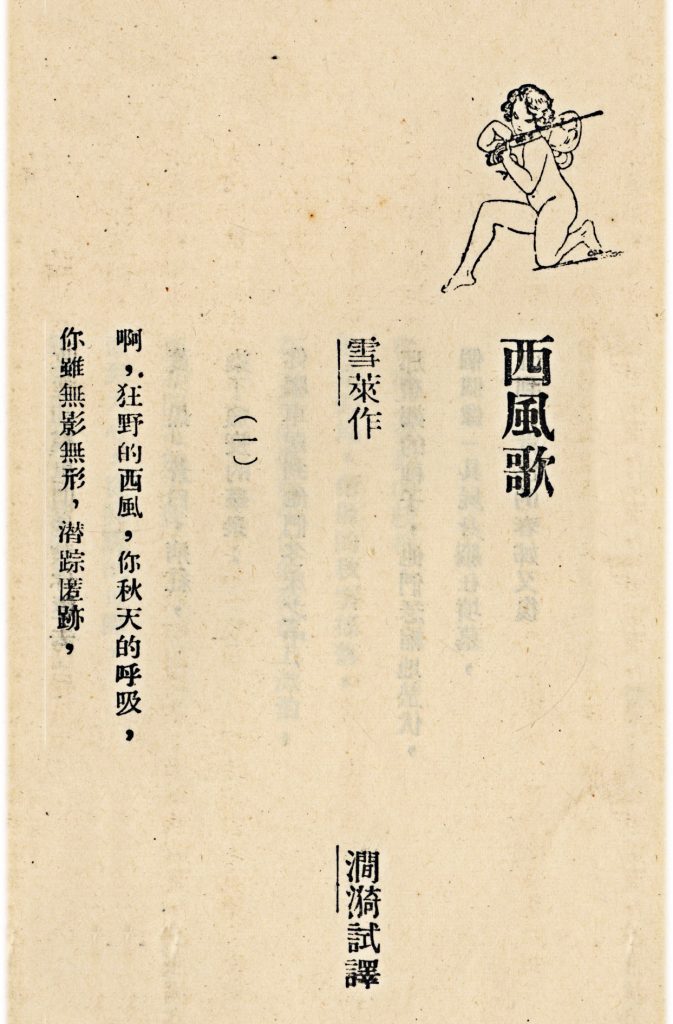 西風歌
雪萊作
澗漪試譯
（一）
啊，狂野的西風，你秋天的呼吸，
你雖無影無形，潛踪匿跡，